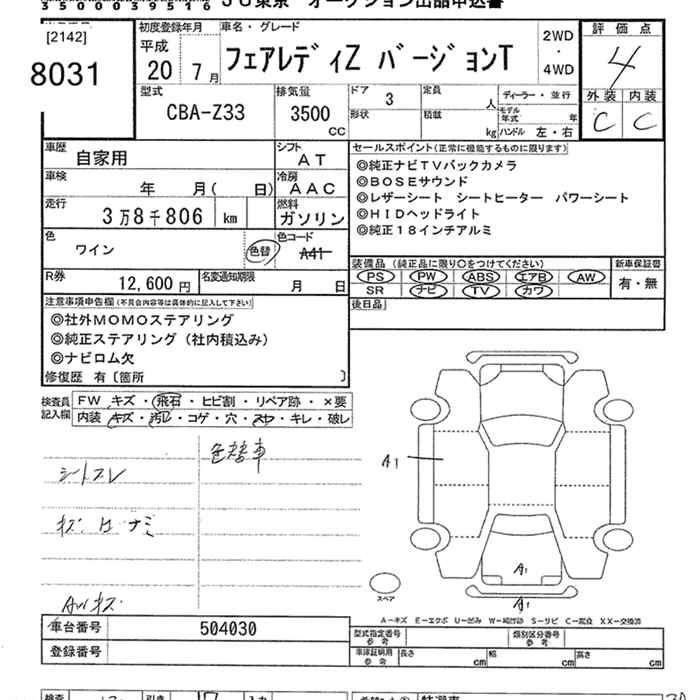 3 8 0 0 0 3 9 5 1 6 JU東京 オークション出品申込書
[2142]
8031
初度登録年月
平成
20 7月
車名・グレード
フェアレディZ バージョンT
2WD
・
4WD
評価点
4
外装 内装
C C
型式
CBA-Z33
排気量
3500
CC
ドア 3
形状
定員 人
積載 kg
ディーラー・並行
モデル年式 年
ハンドル 左・右
車歴
自家用
シフト
AT
車検
年 月( 日)
冷房
AAC
走行
3万8千806 km
燃料
ガソリン
色
ワイン
色替
色コード
A41
R券
12,600円
名変通知期限
月 日
セールスポイント(正常に機能するものに限ります)
◎純正ナビTVバックカメラ
◎BOSEサウンド
◎レザーシート シートヒーター パワーシート
◎HIDヘッドライト
◎純正18インチアルミ
装備品(純正品に限り○をつけてください)
PS PW ABS エアB AW
SR ナビ TV カワ
新車保証書
有・無
後日品
注意事項申告欄(不具合内容等は具体的に記入して下さい)
◎社外MOMOステアリング
◎純正ステアリング(社内積込み)
◎ナビロム欠
修復歴 有〔箇所 〕
検査員
記入欄
FW キズ・飛石・ヒビ割・リペア跡・×要
内装 キズ・汚レ・コゲ・穴・スレ・キレ・破レ
色替車
シートスレ
AWキズ
A1
A1
A1
スペア
A-キズ E-エクボ U-凹み W-補修跡 S-サビ C-腐食 XX-交換済
車台番号 504030
登録番号
型式指定番号
参考
類別区分番号
参考
車庫証明用
参考
長さ cm 幅 cm 高さ cm